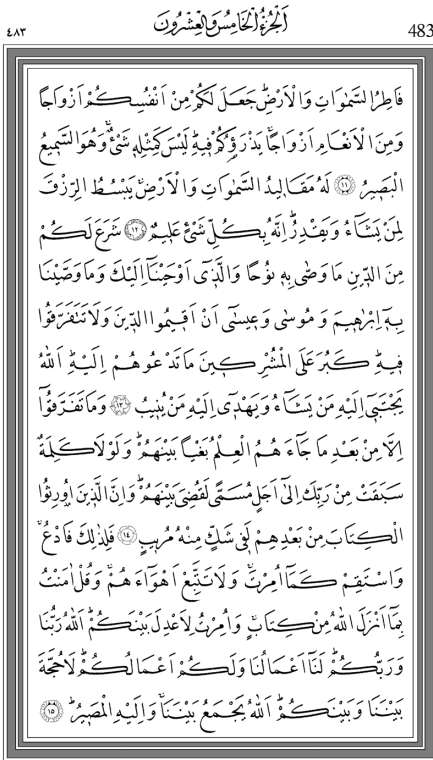 ٤٨٣ اَلْجُزْءُ الْخَامِسُ وَالْعِشْرُونَ 483
فَاطِرُ السَّمٰوَاتِ وَالْاَرْضِۜ جَعَلَ لَكُمْ مِنْ اَنْفُسِكُمْ اَزْوَاجًا
وَمِنَ الْاَنْعَامِ اَزْوَاجًاۚ يَذْرَؤُ۬كُمْ ف۪يهِۜ لَيْسَ كَمِثْلِه۪ شَيْءٌۚ وَهُوَ السَّم۪يعُ
الْبَص۪يرُ ﴿١١﴾ لَهُ مَقَال۪يدُ السَّمٰوَاتِ وَالْاَرْضِۚ يَبْسُطُ الرِّزْقَ
لِمَنْ يَشَٓاءُ وَيَقْدِرُۜ اِنَّهُ بِكُلِّ شَيْءٍ عَل۪يمٌ ﴿١٢﴾ شَرَعَ لَكُمْ
مِنَ الدّ۪ينِ مَا وَصّٰى بِه۪ نُوحًا وَالَّذ۪ٓي اَوْحَيْنَٓا اِلَيْكَ وَمَا وَصَّيْنَا
بِه۪ٓ اِبْرٰه۪يمَ وَمُوسٰى وَع۪يسٰٓى اَنْ اَق۪يمُوا الدّ۪ينَ وَلَا تَتَفَرَّقُوا
ف۪يهِۜ كَبُرَ عَلَى الْمُشْرِك۪ينَ مَا تَدْعُوهُمْ اِلَيْهِۜ اَللّٰهُ
يَجْتَب۪ٓي اِلَيْهِ مَنْ يَشَٓاءُ وَيَهْد۪ٓي اِلَيْهِ مَنْ يُن۪يبُ ﴿١٣﴾ وَمَا تَفَرَّقُٓوا
اِلَّا مِنْ بَعْدِ مَا جَٓاءَهُمُ الْعِلْمُ بَغْيًا بَيْنَهُمْۜ وَلَوْلَا كَلِمَةٌ
سَبَقَتْ مِنْ رَبِّكَ اِلٰٓى اَجَلٍ مُسَمًّى لَقُضِيَ بَيْنَهُمْۜ وَاِنَّ الَّذ۪ينَ اُو۫رِثُوا
الْكِتَابَ مِنْ بَعْدِهِمْ لَف۪ي شَكٍّ مِنْهُ مُر۪يبٍ ﴿١٤﴾ فَلِذٰلِكَ فَادْعُۚ
وَاسْتَقِمْ كَمَٓا اُمِرْتَۚ وَلَا تَتَّبِعْ اَهْوَٓاءَهُمْۚ وَقُلْ اٰمَنْتُ
بِمَٓا اَنْزَلَ اللّٰهُ مِنْ كِتَابٍۚ وَاُمِرْتُ لِاَعْدِلَ بَيْنَكُمْۜ اَللّٰهُ رَبُّنَا
وَرَبُّكُمْۜ لَنَٓا اَعْمَالُنَا وَلَكُمْ اَعْمَالُكُمْۜ لَا حُجَّةَ
بَيْنَنَا وَبَيْنَكُمْۜ اَللّٰهُ يَجْمَعُ بَيْنَنَاۚ وَاِلَيْهِ الْمَص۪يرُۜ ﴿١٥﴾